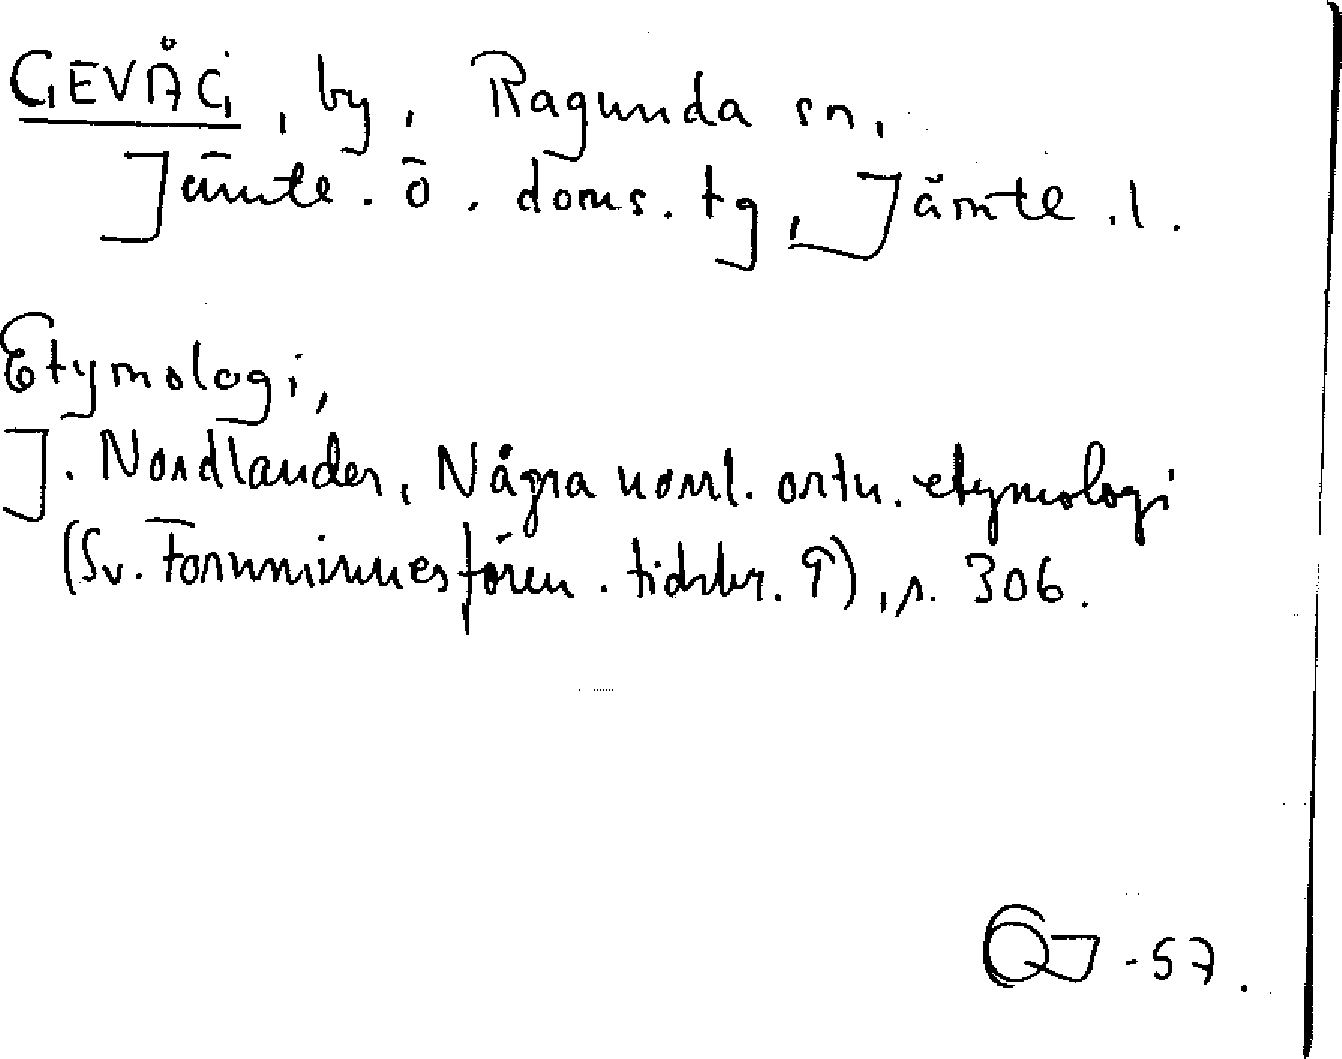 GEVÅG, by, Ragunda sn,
Jämte. ö. doms. tg, Jämte.l.
Etymologi,
J. Nordlander, Några norrl. ortn. etymologi
(Sv. Fornminnesfören. tidskr. 9), s. 306.
-57.